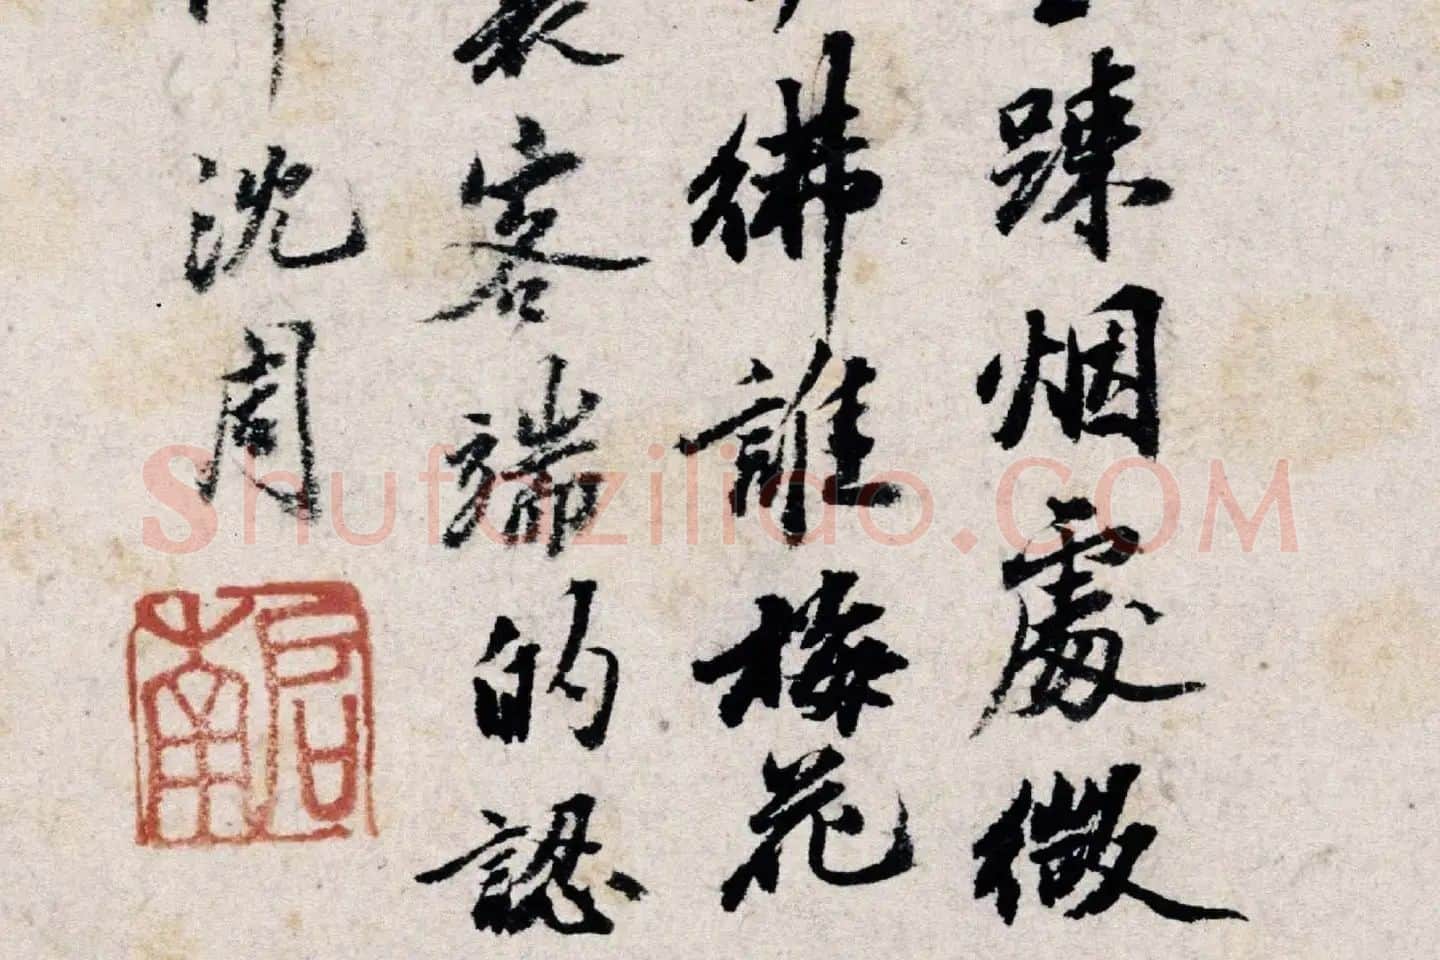 踈烟處微
彿誰梅花
客端的認
沈周
啟南
Shufaziliao.COM